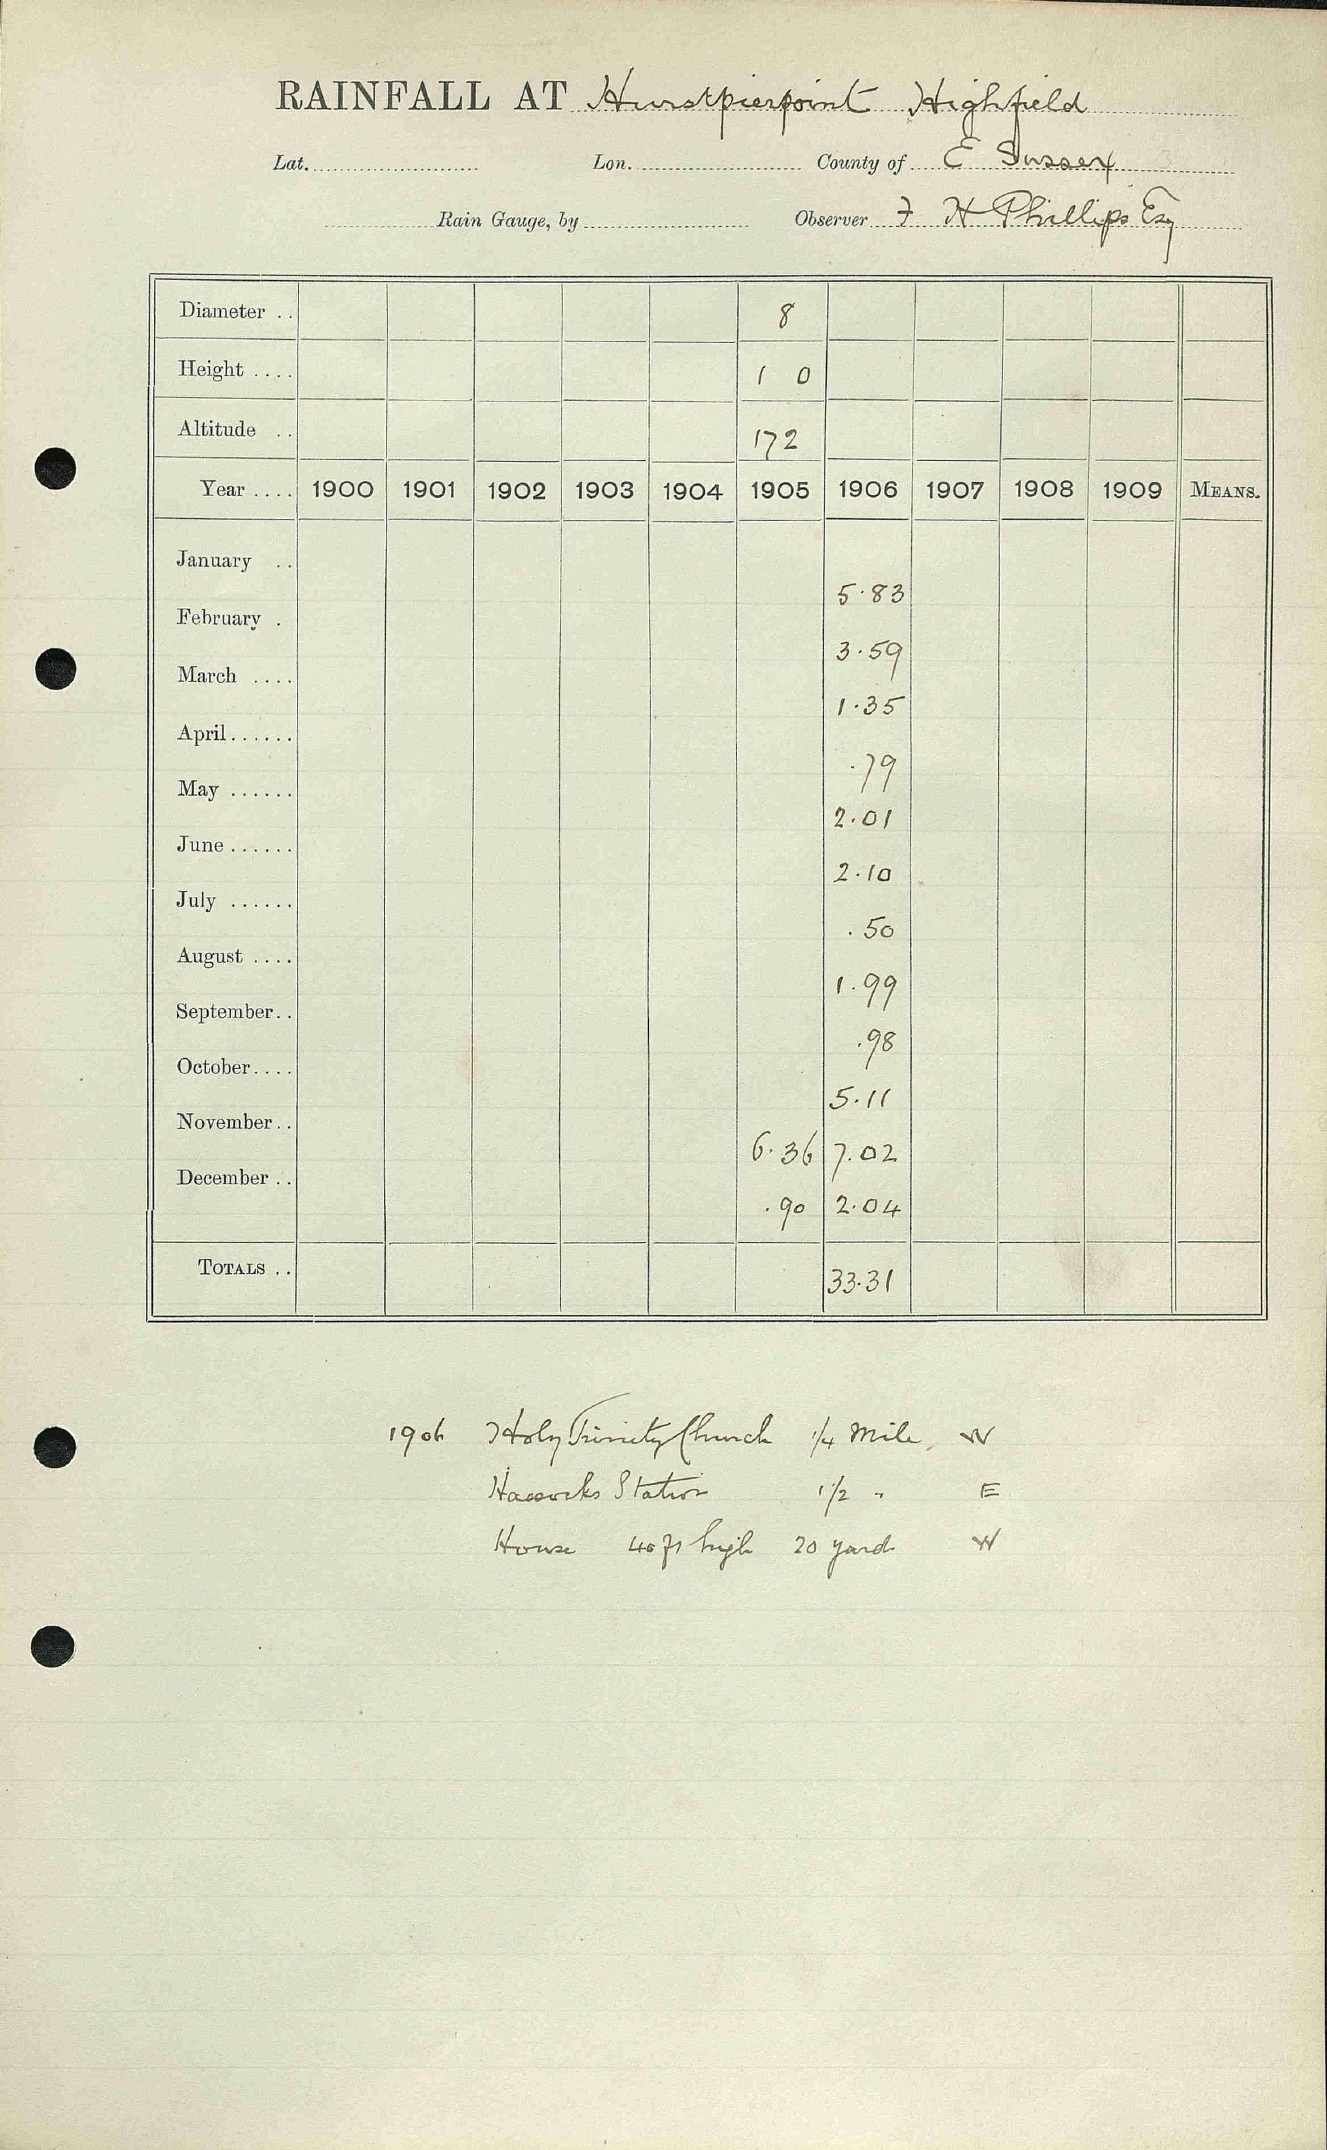 RAINFALL AT Hurstpierpoint Highfield
Lat. Lon. County of E Sussex
Rain Gauge, by Observer F H Phillips Esq
Diameter .. 8
Height .... 1 0
Altitude .. 172
Year .... 1900 1901 1902 1903 1904 1905 1906 1907 1908 1909 MEANS.
January .. 5.83
February . 3.59
March .... 1.35
April...... .79
May ...... 2.01
June ...... 2.10
July ...... .50
August .... 1.99
September.. .98
October.... 5.11
November.. 6.36 7.02
December .. .90 2.04
TOTALS .. 33.31
1906 Holy Trinity Church 1/4 Mile W
Hassocks Station 1/2 " E
House 40 ft high 20 yards W